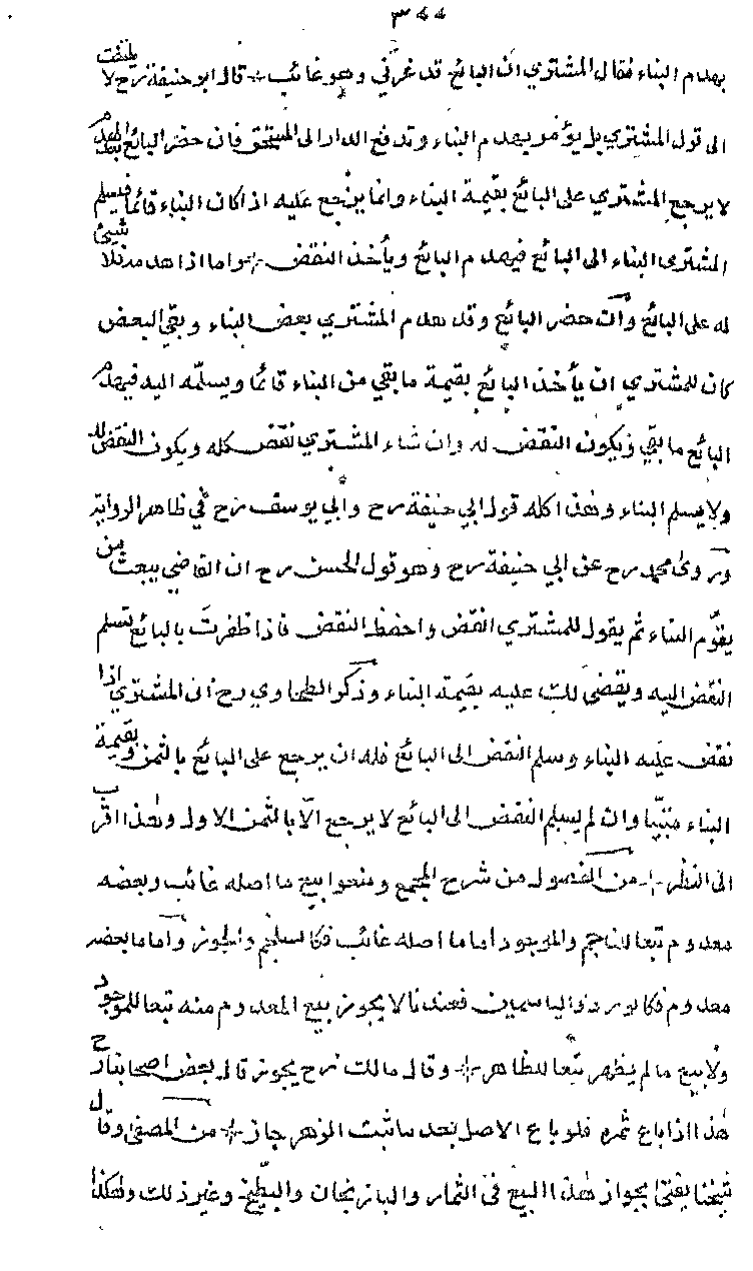 ٣٤٤
بهدم البناء فقال المشتري ان البائع قد غرني وهو غائب قال ابو حنيفة رح لا يلتفت
الى قول المشتري بل يؤمر بهدم البناء وتدفع الدار الى المستحق فان حضر البائع بعد الهدم
لا يرجع المشتري على البائع بقيمة البناء وانما يرجع عليه اذا كان البناء قائما فيسلم
المشتري البناء الى البائع فيهدم البائع ويأخذ النقض واما اذا هدمه فلا شيئ
له على البائع وان حضر البائع وقد هدم المشتري بعض البناء وبقي البعض
كان للمشتري ان يأخذ البائع بقيمة ما بقي من البناء قائما ويسلمه اليه فيهدم
البائع ما بقي ويكون النقض له وان شاء المشتري نقض كله ويكون النقض له
ولا يسلم البناء وهذا كله قول ابي حنيفة رح وابي يوسف رح في ظاهر الرواية
وروى محمد رح عن ابي حنيفة رح وهو قول الحسن رح ان القاضي يبعث من
يقوّم البناء ثم يقول للمشتري انقض واحفظ النقض فاذا ظفرت بالبائع تسلم
النقض اليه ويقضى لك عليه بقيمة البناء وذكر الطحاوي رح ان المشتري اذا
نقض عليه البناء وسلم النقض الى البائع فله ان يرجع على البائع بالثمن وبقيمة
البناء مبنيا وان لم يسلم النقض الى البائع لا يرجع الّا بالثمن الاول وهذا اقرب
الى النظر من الفصول من شرح المجمع ومنعوا بيع ما اصله غائب وبعضه
معدوم تبعا للناجم والموجود اما ما اصله غائب فكالسلجم والجوز واما ما بعضه
معدوم فكالورد والياسمين فعندنا لا يجوز بيع المعدوم منه تبعا للموجود
ولا بيع ما لم يظهر تبعا للظاهر وقال مالك رح يجوز قال بعض اصحابنا رح
هذا اذا باع ثمره فلو باع الاصل بعد ما نبت الزهر جاز من المصفى وقال
شيخنا يفتى بجواز هذا البيع فى الثمار والباذنجان والبطيخ وغير ذلك وهكذا